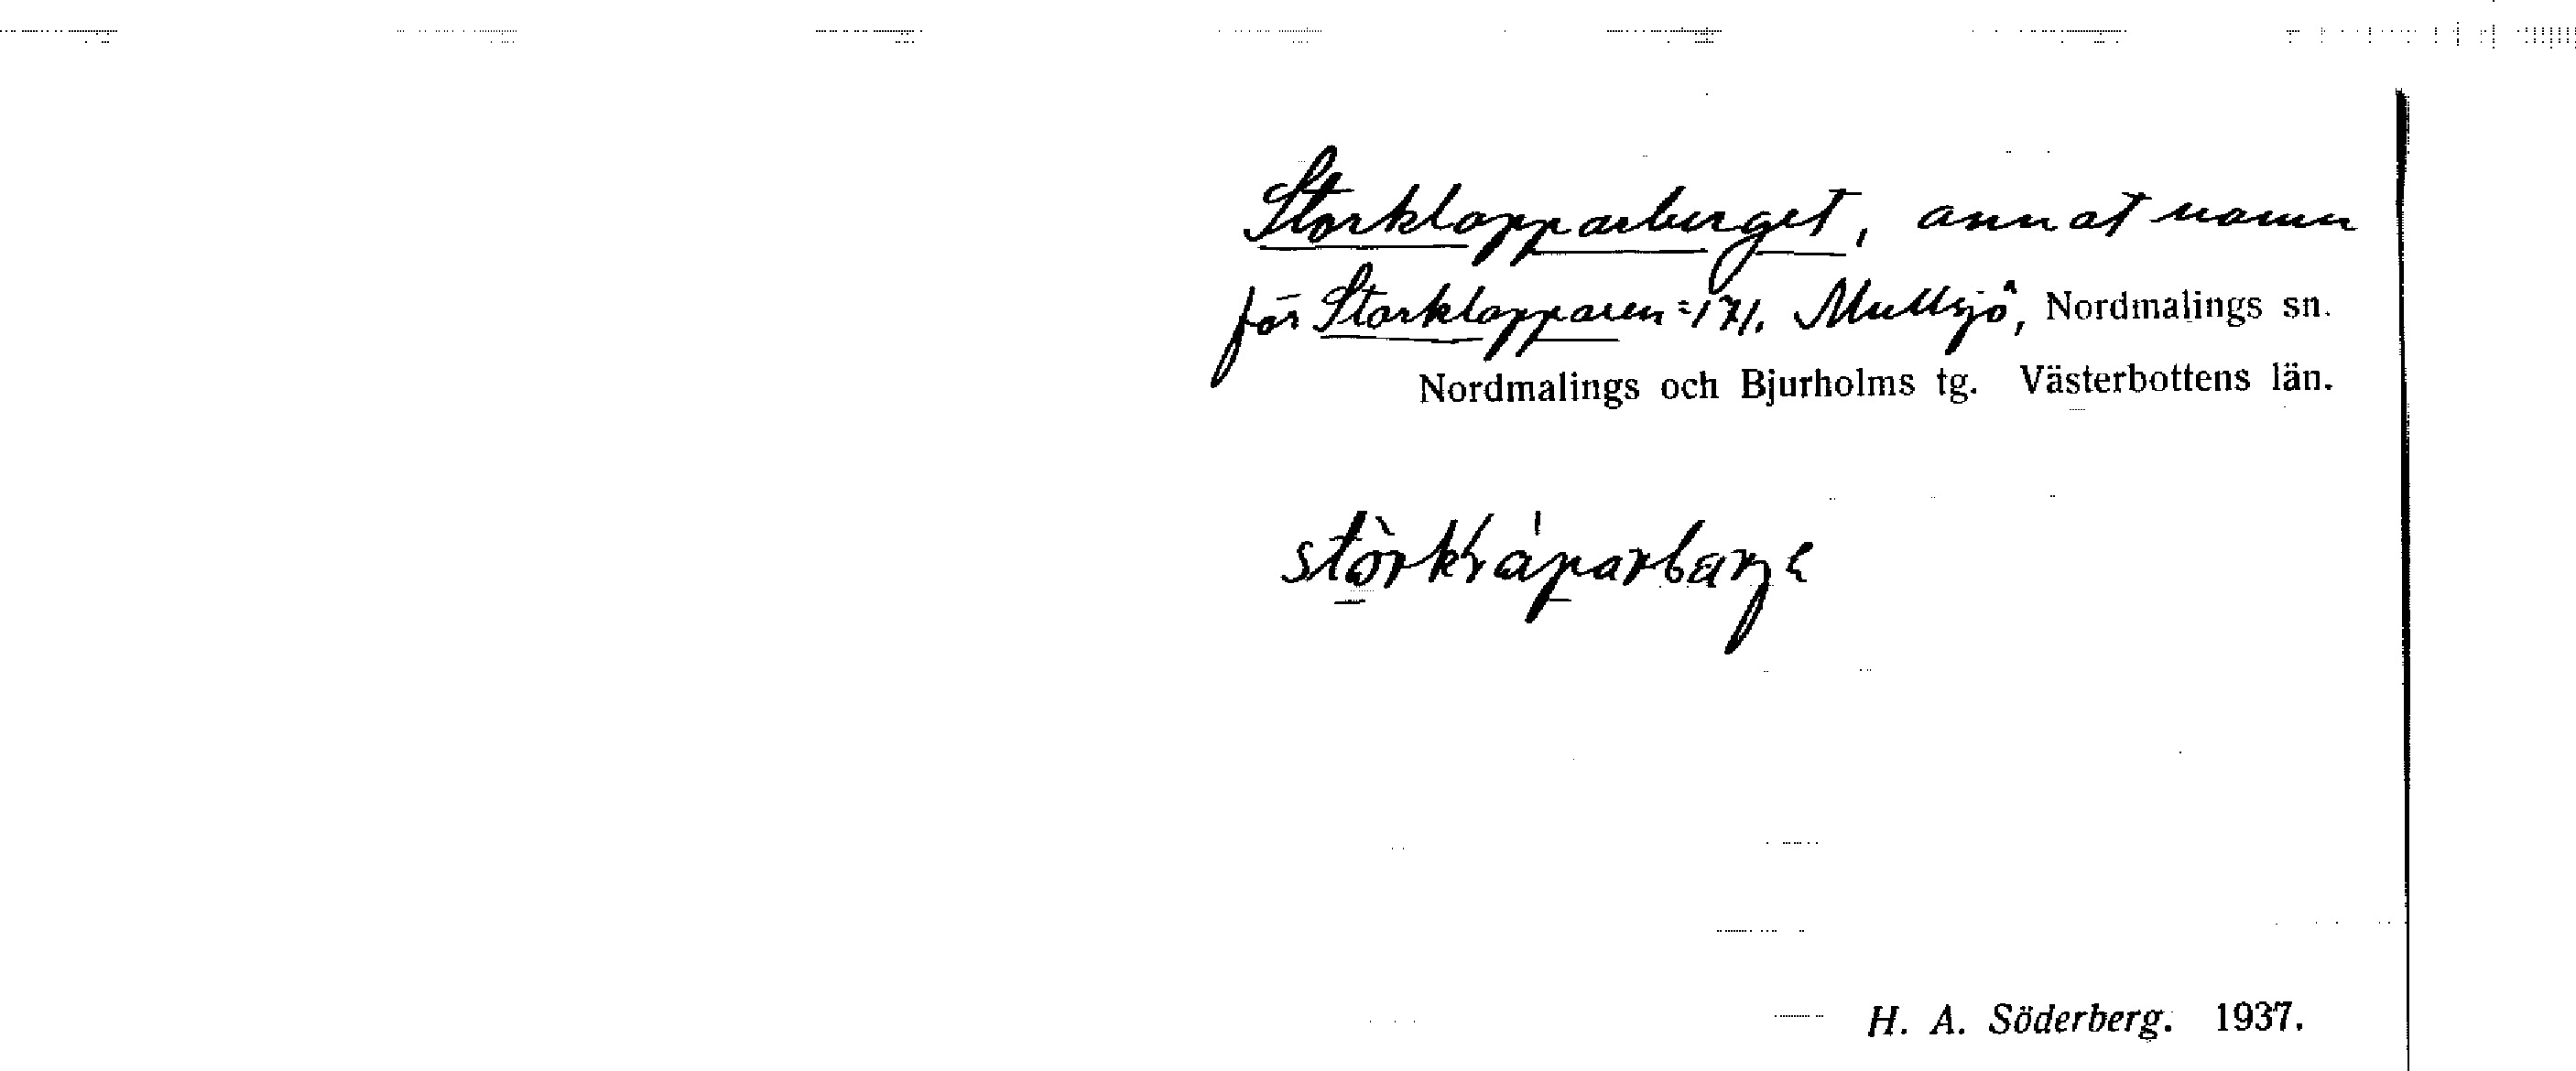 Storklapparberget, annat namn
för Storklapparen = 171. Mullsjö, Nordmalings sn.
Nordmalings och Bjurholms tg. Västerbottens län.
H. A. Söderberg. 1937.